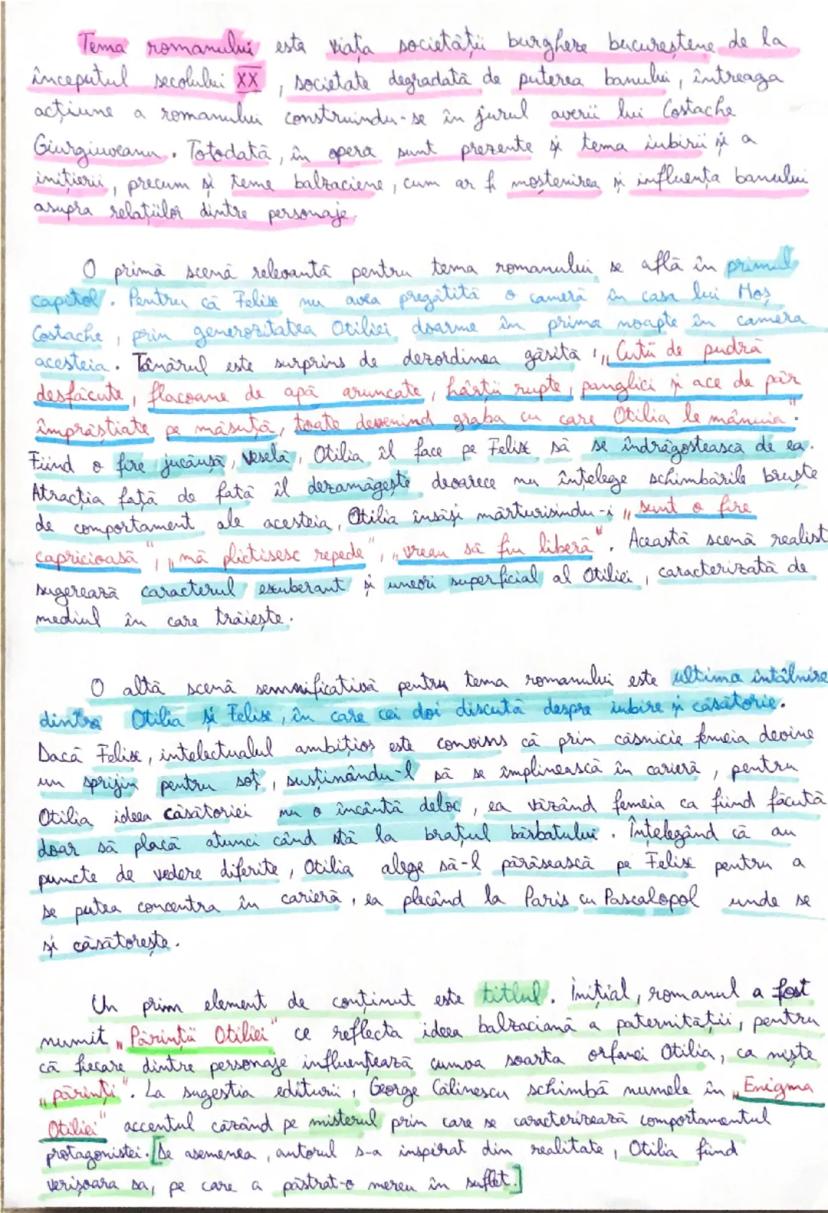 Tema romanului este viața societății burgheze bucureștene de la
începutul secolului XX, societate degradată de puterea banului, întreaga
acțiune a romanului construindu-se în jurul averii lui Costache
Giurgiuveanu. Totodată, în opera sunt prezente și tema iubirii și a
inițierii, precum și teme balzaciene, cum ar fi moștenirea și influența banului
asupra relațiilor dintre personaje.
O primă scenă relevantă pentru tema romanului se află în primul
capitol. Pentru că Felix nu avea pregătită o cameră în casa lui Moș
Costache, prin generozitatea Otiliei doarme în prima noapte în camera
acesteia. Tânărul este surprins de dezordinea găsită: "Cutii de pudră
desfăcute, flacoane de apă aruncate, hârtii rupte, panglici și ace de păr
împrăștiate pe măsuță, toate dovenind graba cu care Otilia le mânuia".
Fiind o fire jucăușă, veselă, Otilia îl face pe Felix să se îndrăgostească de ea.
Atracția față de fată îl dezamăgește deoarece nu înțelege schimbările bruște
de comportament ale acesteia, Otilia însăși mărturisindu-i "sunt o fire
capricioasă", "mă plictisesc repede", "vreau să fiu liberă". Această scenă realist
sugerează caracterul exuberant și uneori superficial al Otiliei, caracterizată de
mediul în care trăiește.
O altă scenă semnificativă pentru tema romanului este ultima întâlnire
dintre Otilia și Felix, în care cei doi discută despre iubire și căsătorie.
Dacă Felix, intelectualul ambițios este convins că prin căsnicie femeia devine
un sprijin pentru soț, susținându-l să se împlinească în carieră, pentru
Otilia ideea căsătoriei nu o încântă deloc, ea văzând femeia ca fiind făcută
doar să placă atunci când stă la brațul bărbatului. Înțelegând că au
puncte de vedere diferite, Otilia alege să-l părăsească pe Felix pentru a
se putea concentra în carieră, ea plecând la Paris cu Pascalopol unde se
și căsătorește.
Un prim element de conținut este titlul. Inițial, romanul a fost
numit "Părinții Otiliei" ce reflecta ideea balzaciană a paternității, pentru
că fiecare dintre personaje influențează cumva soarta orfanei Otilia, ca niște
"părinți". La sugestia editurii, George Călinescu schimbă numele în "Enigma
Otiliei" accentul căzând pe misterul prin care se caracterizează comportamentul
protagonistei. [De asemenea, autorul s-a inspirat din realitate, Otilia fiind
verișoara sa, pe care a păstrat-o mereu în suflet.]